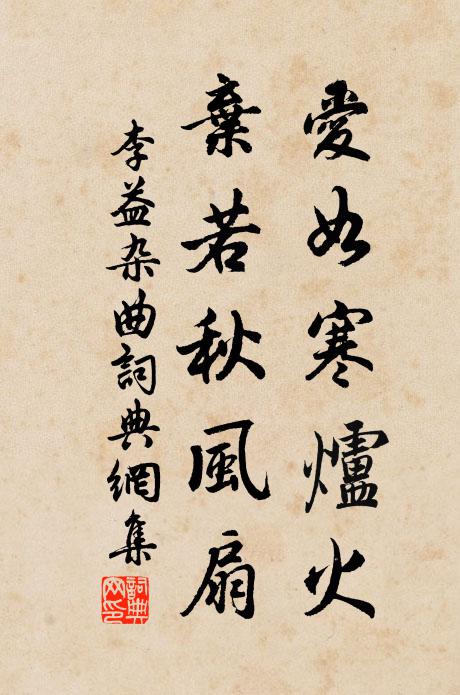 愛如寒爐火
棄若秋風扇
李益杂曲詞典網集
詞典网印